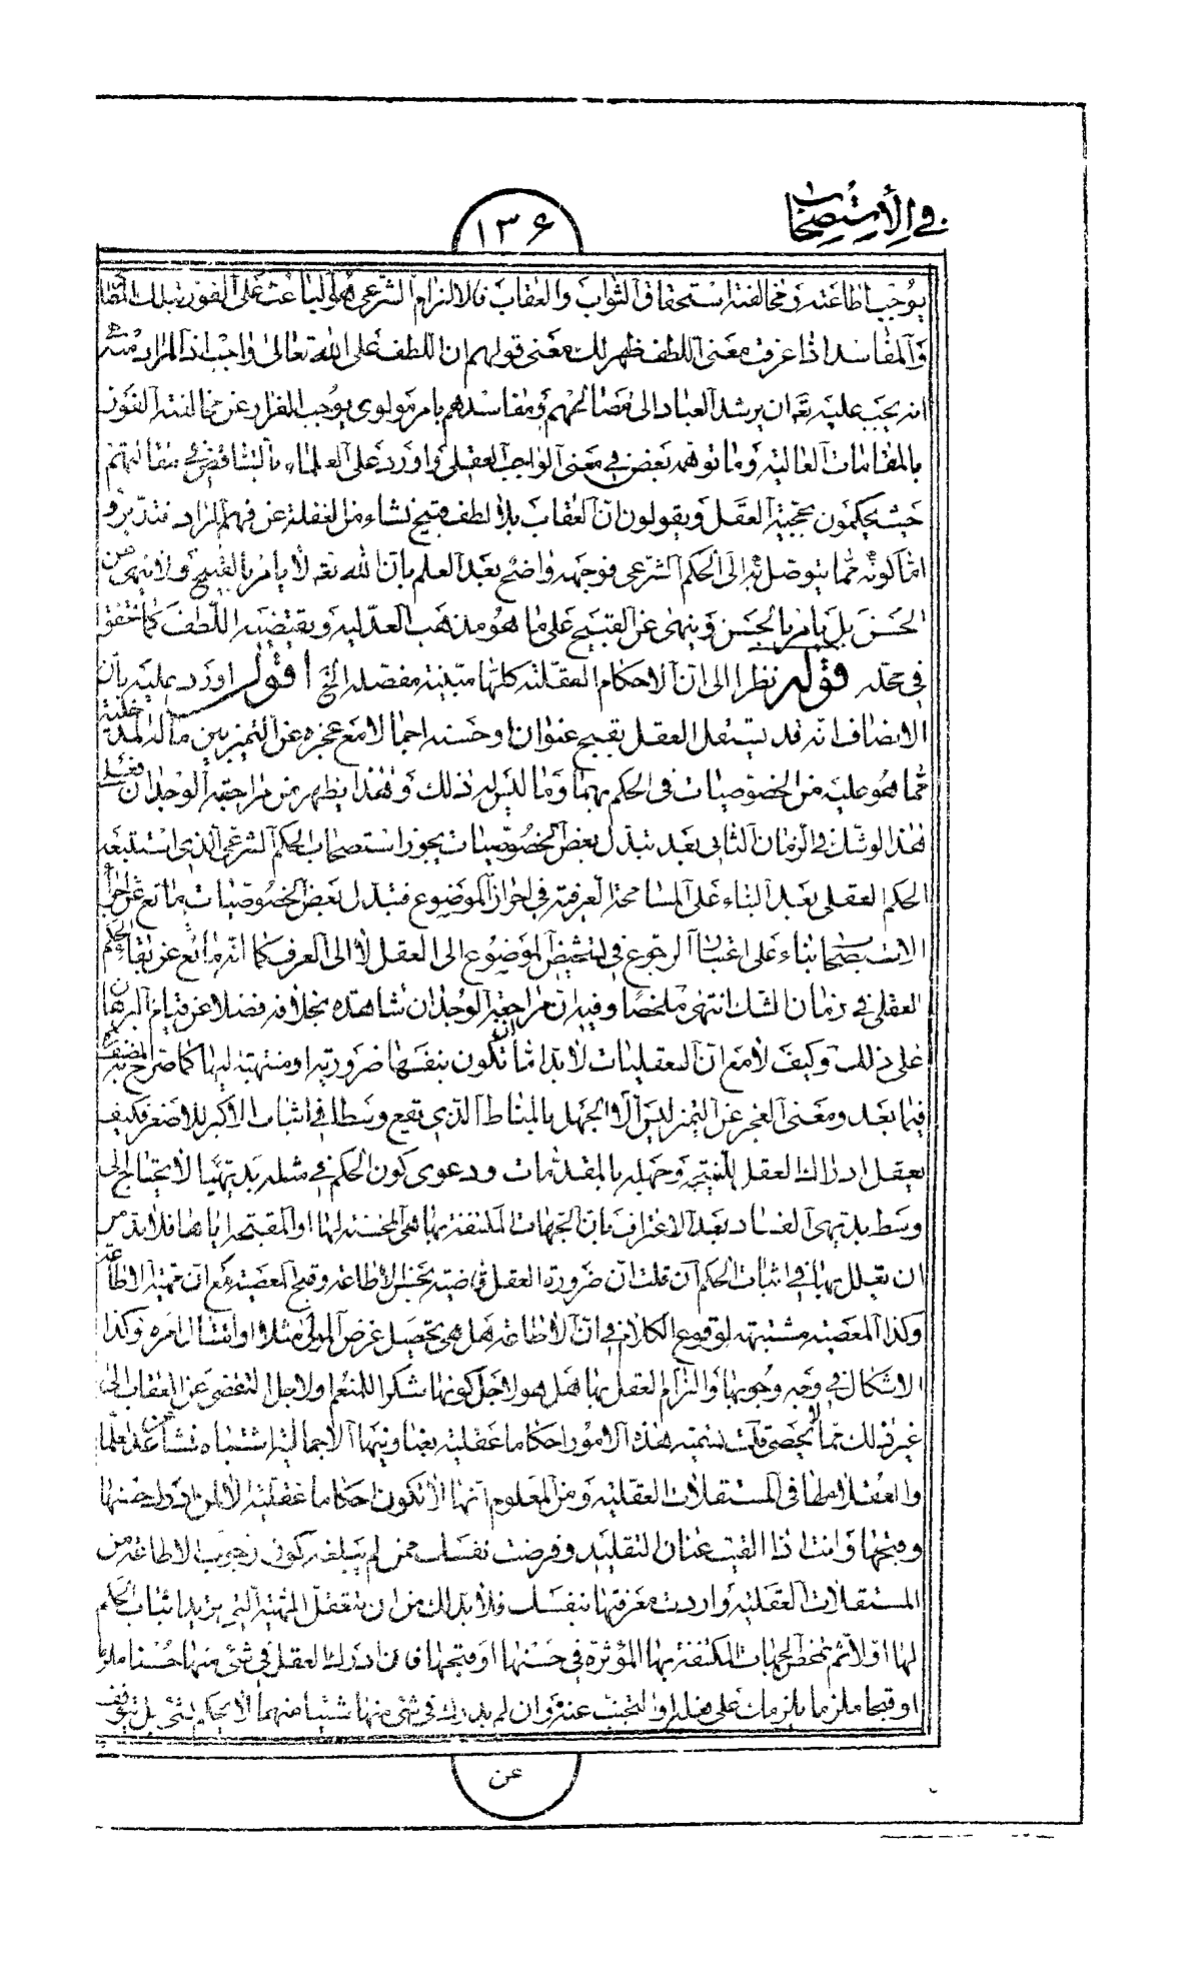 في الاستصحاب
۱۳۶
يوجب اطاعته و مخالفته استحقاق الثواب والعقاب فالالزام الشرعي هو الباعث على الفوز بتلك المصالح
والمفاسد اذا عرفت معنى اللطف ظهر لك معنى قولهم ان اللطف على الله تعالى واجب اذ المراد منه
انه يجب عليه تعه ان يرشد العباد الى مصالحهم ومفاسدهم بامر مولوي يوجب الفرار عن مخالفته الفوز
بالمقامات العالية وما توهمه بعض في معنى الواجب العقلي واورد على العلماء بالتناقض في مقالتهم
حيث يحكمون بحجية العقل ويقولون ان العقاب بلا لطف قبيح نشاء من الغفلة عن فهم المراد فتدبر و
اما كونه مما يتوصل به الى الحكم الشرعي فوجهه واضح بعد العلم بان الله تعه لا يامر بالقبيح ولا ينهى عن
الحسن بل يامر بالحسن وينهى عن القبيح على ما هو مذهب العدلية ويقتضيه اللطف كما حقق
في محله قوله نظرا الى ان الاحكام العقلية كلها مبينة مفصلة الخ اقول اورد عليه بان
الانصاف انه قد يستقل العقل بقبح عنوان او حسنه اجمالا مع عجزه عن التميز بين ماله المدخلية
مما هو عليه من الخصوصيات في الحكم بهما وما ليس له ذلك وهذا يظهر من مراجعة الوجدان فعند
هذا لو شك في الزمان الثاني بعد تبدل بعض الخصوصيات يجوز استصحاب الحكم الشرعي الذي استتبعه
الحكم العقلي بعد البناء على المسامحة العرفية في احراز الموضوع فتبدل بعض الخصوصيات مانع عن اجراء
الاستصحاب بناء على اعتبار الرجوع في تشخيص الموضوع الى العقل لا الى العرف كما انه مانع عن بقاء الحكم
العقلي في زمان الشك انتهى ملخصا وفيه ان مراجعة الوجدان شاهدة بخلافه فضلا عن قيام البرهان
على ذلك وكيف لا مع ان العقليات لابد اما ان تكون بنفسها ضرورية او منتهية اليها كما صرح به المصنف ره
فيما بعد ومعنى العجز عن التميز ليس الا الجهل بالمناط الذي يقع وسطا في اثبات الاكبر للاصغر فكيف
يعقل ادراك العقل للنتيجه وجهله بالمقدمات ودعوى كون الحكم في مثله بديهيا لا يحتاج الى
وسط بديهي الفساد بعد الاعتراف بان الجهات المكتنفة بها هي المحسنة لها او المقبحة اياها فلابد من
ان يعلل بها في اثبات الحكم ان قلت ان ضرورة العقل قاضية بحسن الاطاعة وقبح المعصية مع ان مهية الاطاعة
وكذا المعصية مشتبهه لوقوع الكلام في ان الاطاعة هل هي تحصيل غرض المولى مثلا او امتثال امره وكذا
الاشكال في وجه وجوبها والزام العقل بها هل هو لاجل كونها شكرا للمنعم او لاجل التفصي عن العقاب الى
غير ذلك مما لا يحصى قلت تسمية هذه الامور احكاما عقلية بعناوينها الاجمالية اشتباه نشأ عن عد العلماء
والعقلاء اياها في المستقلات العقلية ومن المعلوم انها لا تكون احكاما عقلية الا لمن ادرك حسنها
وقبحها وانت اذا القيت عنان التقليد وفرضت نفسك ممن لم يبلغه كون وجوب الاطاعة من
المستقلات العقلية واردت معرفتها بنفسك فلابد لك من ان تتعقل المهية التي تريد اثبات الحكم
لها اولا ثم تفحص الجهات المكتنفة بها المؤثرة في حسنها او قبحها فان ادرك العقل في شئ منها حسنا ملزما
او قبحا ملزما يلزمك على فعله او التجنب عنه وان لم يدرك في شئ منها شيئا منهما لا يحكم بشئ بل يتوقف
عن